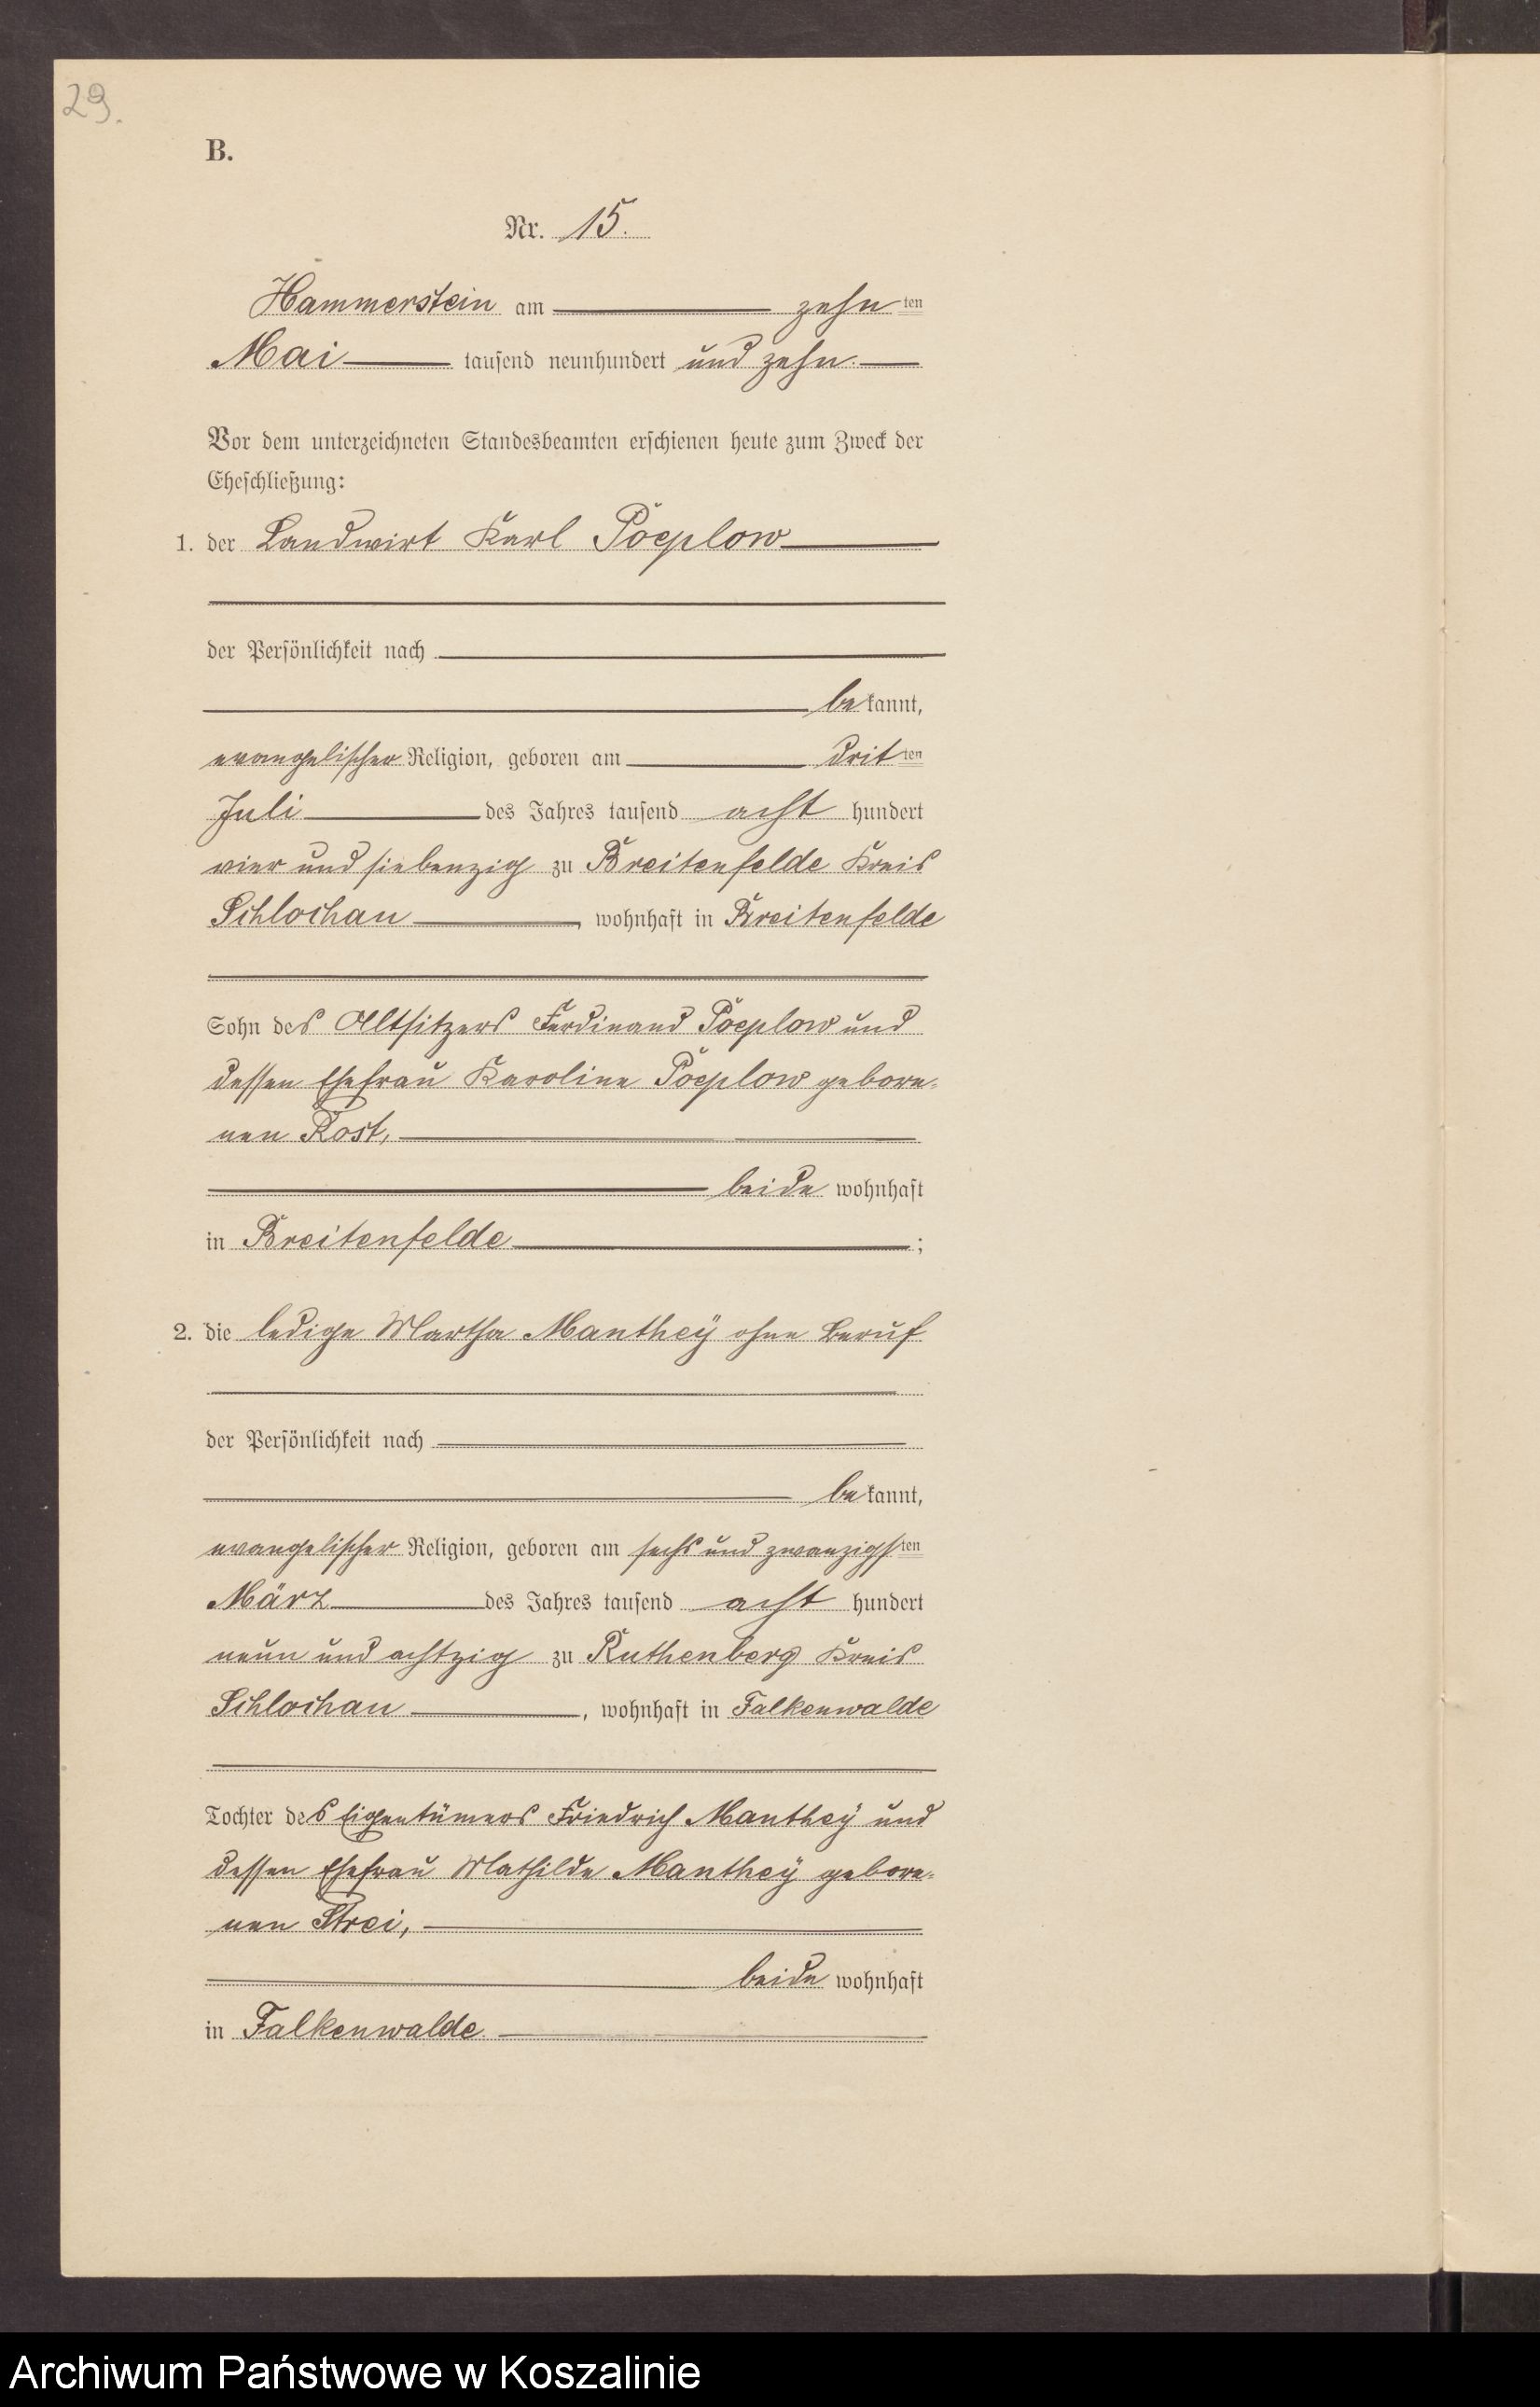 29.
B.
Nr. 15.
Hammerstein am zehn ten
Mai tausend neunhundert und zehn.
Vor dem unterzeichneten Standesbeamten erschienen heute zum Zweck der
Eheschließung:
1. der Landwirt Karl Poeplow
der Persönlichkeit nach
be kannt,
evangelischer Religion, geboren am drit ten
Juli des Jahres tausend acht hundert
vier und siebenzig zu Breitenfelde Kreis
Schlochau, wohnhaft in Breitenfelde
Sohn des Altsitzers Ferdinand Poeplow und
dessen Ehefrau Karoline Poeplow gebore-
nen Rost,
beide wohnhaft
in Breitenfelde ;
2. die ledige Martha Mantheÿ ohne Beruf
der Persönlichkeit nach
be kannt,
evangelischer Religion, geboren am sechs und zwanzigs ten
März des Jahres tausend acht hundert
neun und achtzig zu Ruthenberg Kreis
Schlochau, wohnhaft in Falkenwalde
Tochter des Eigentümers Friedrich Mantheÿ und
dessen Ehefrau Mathilde Mantheÿ gebore-
nen Strei,
beide wohnhaft
in Falkenwalde
Archiwum Państwowe w Koszalinie